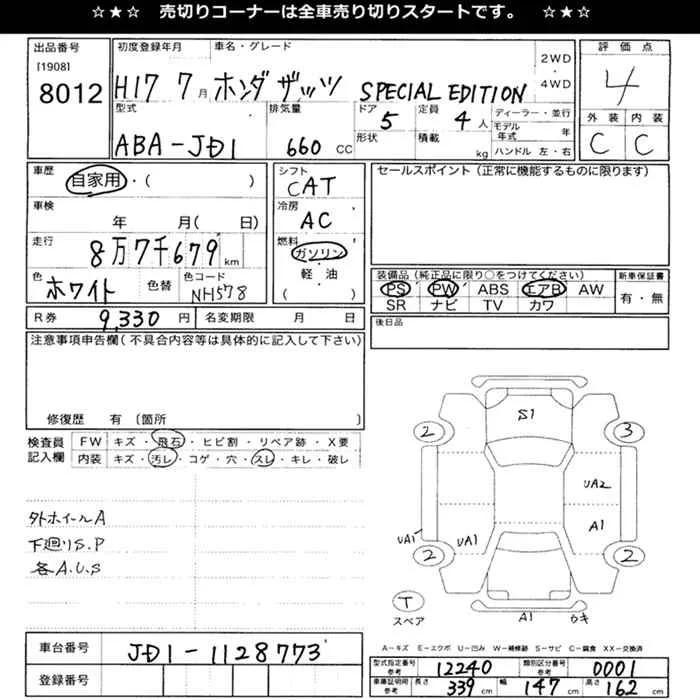 ☆★☆ 売切りコーナーは全車売り切りスタートです。 ☆★☆
出品番号
[1908]
8012
初度登録年月
車名・グレード
H17 7月 ホンダ ザッツ SPECIAL EDITION
2WD
・
4WD
型式
ABA-JD1
排気量
660 CC
ドア
5
形状
定員
4人
積載
kg
ディーラー・並行
モデル年式 年
ハンドル 左・右
評価点
4
外装 内装
C C
車歴
自家用・( )
車検
年 月( 日)
走行
8万7千679 km
色
ホワイト
色替
色コード
NH578
シフト
CAT
冷房
AC
燃料
ガソリン
・
軽・油
( )
セールスポイント(正常に機能するものに限ります)
装備品(純正品に限り○をつけてください)
PS PW ABS エアB AW
SR ナビ TV カワ
新車保証書
有・無
R券 9,330 円 名変期限 月 日
後日品
注意事項申告欄(不具合内容等は具体的に記入して下さい)
修復歴 有 〔箇所
検査員
記入欄
FW キズ・飛石・ヒビ割・リペア跡・X要
内装 キズ・汚レ・コゲ・穴・スレ・キレ・破レ
外ホイールA
下廻りS.P
各A.U.S
S1
2
3
UA2
A1
UA1
UA1
2
2
T
スペア
A1 ウキ
A－キズ E－エクボ U－凹み W－補修跡 S－サビ C－腐食 XX－交換済
車台番号 JD1-1128773
登録番号
型式指定番号
参考
12240
類別区分番号
参考
0001
車庫証明用
参考
長さ 339 cm 幅 147 cm 高さ 162 cm